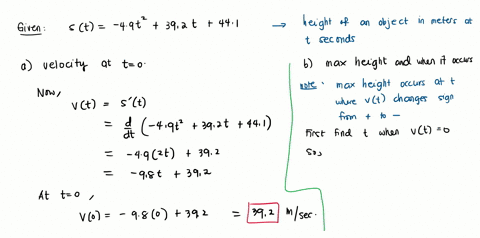 Given: s(t) = -4.9t² + 39.2t + 44.1 → height of an object in meters at
t seconds
a) velocity at t=0.
Now,
v(t) = s'(t)
= d/dt (-4.9t² + 39.2t + 44.1)
= -4.9(2t) + 39.2
= -9.8t + 39.2
At t=0,
v(0) = -9.8(0) + 39.2 = 39.2 m/sec.
b) max height and when it occurs
note: max height occurs at t
where v(t) changes sign
from + to -
First find t when v(t) = 0
So,